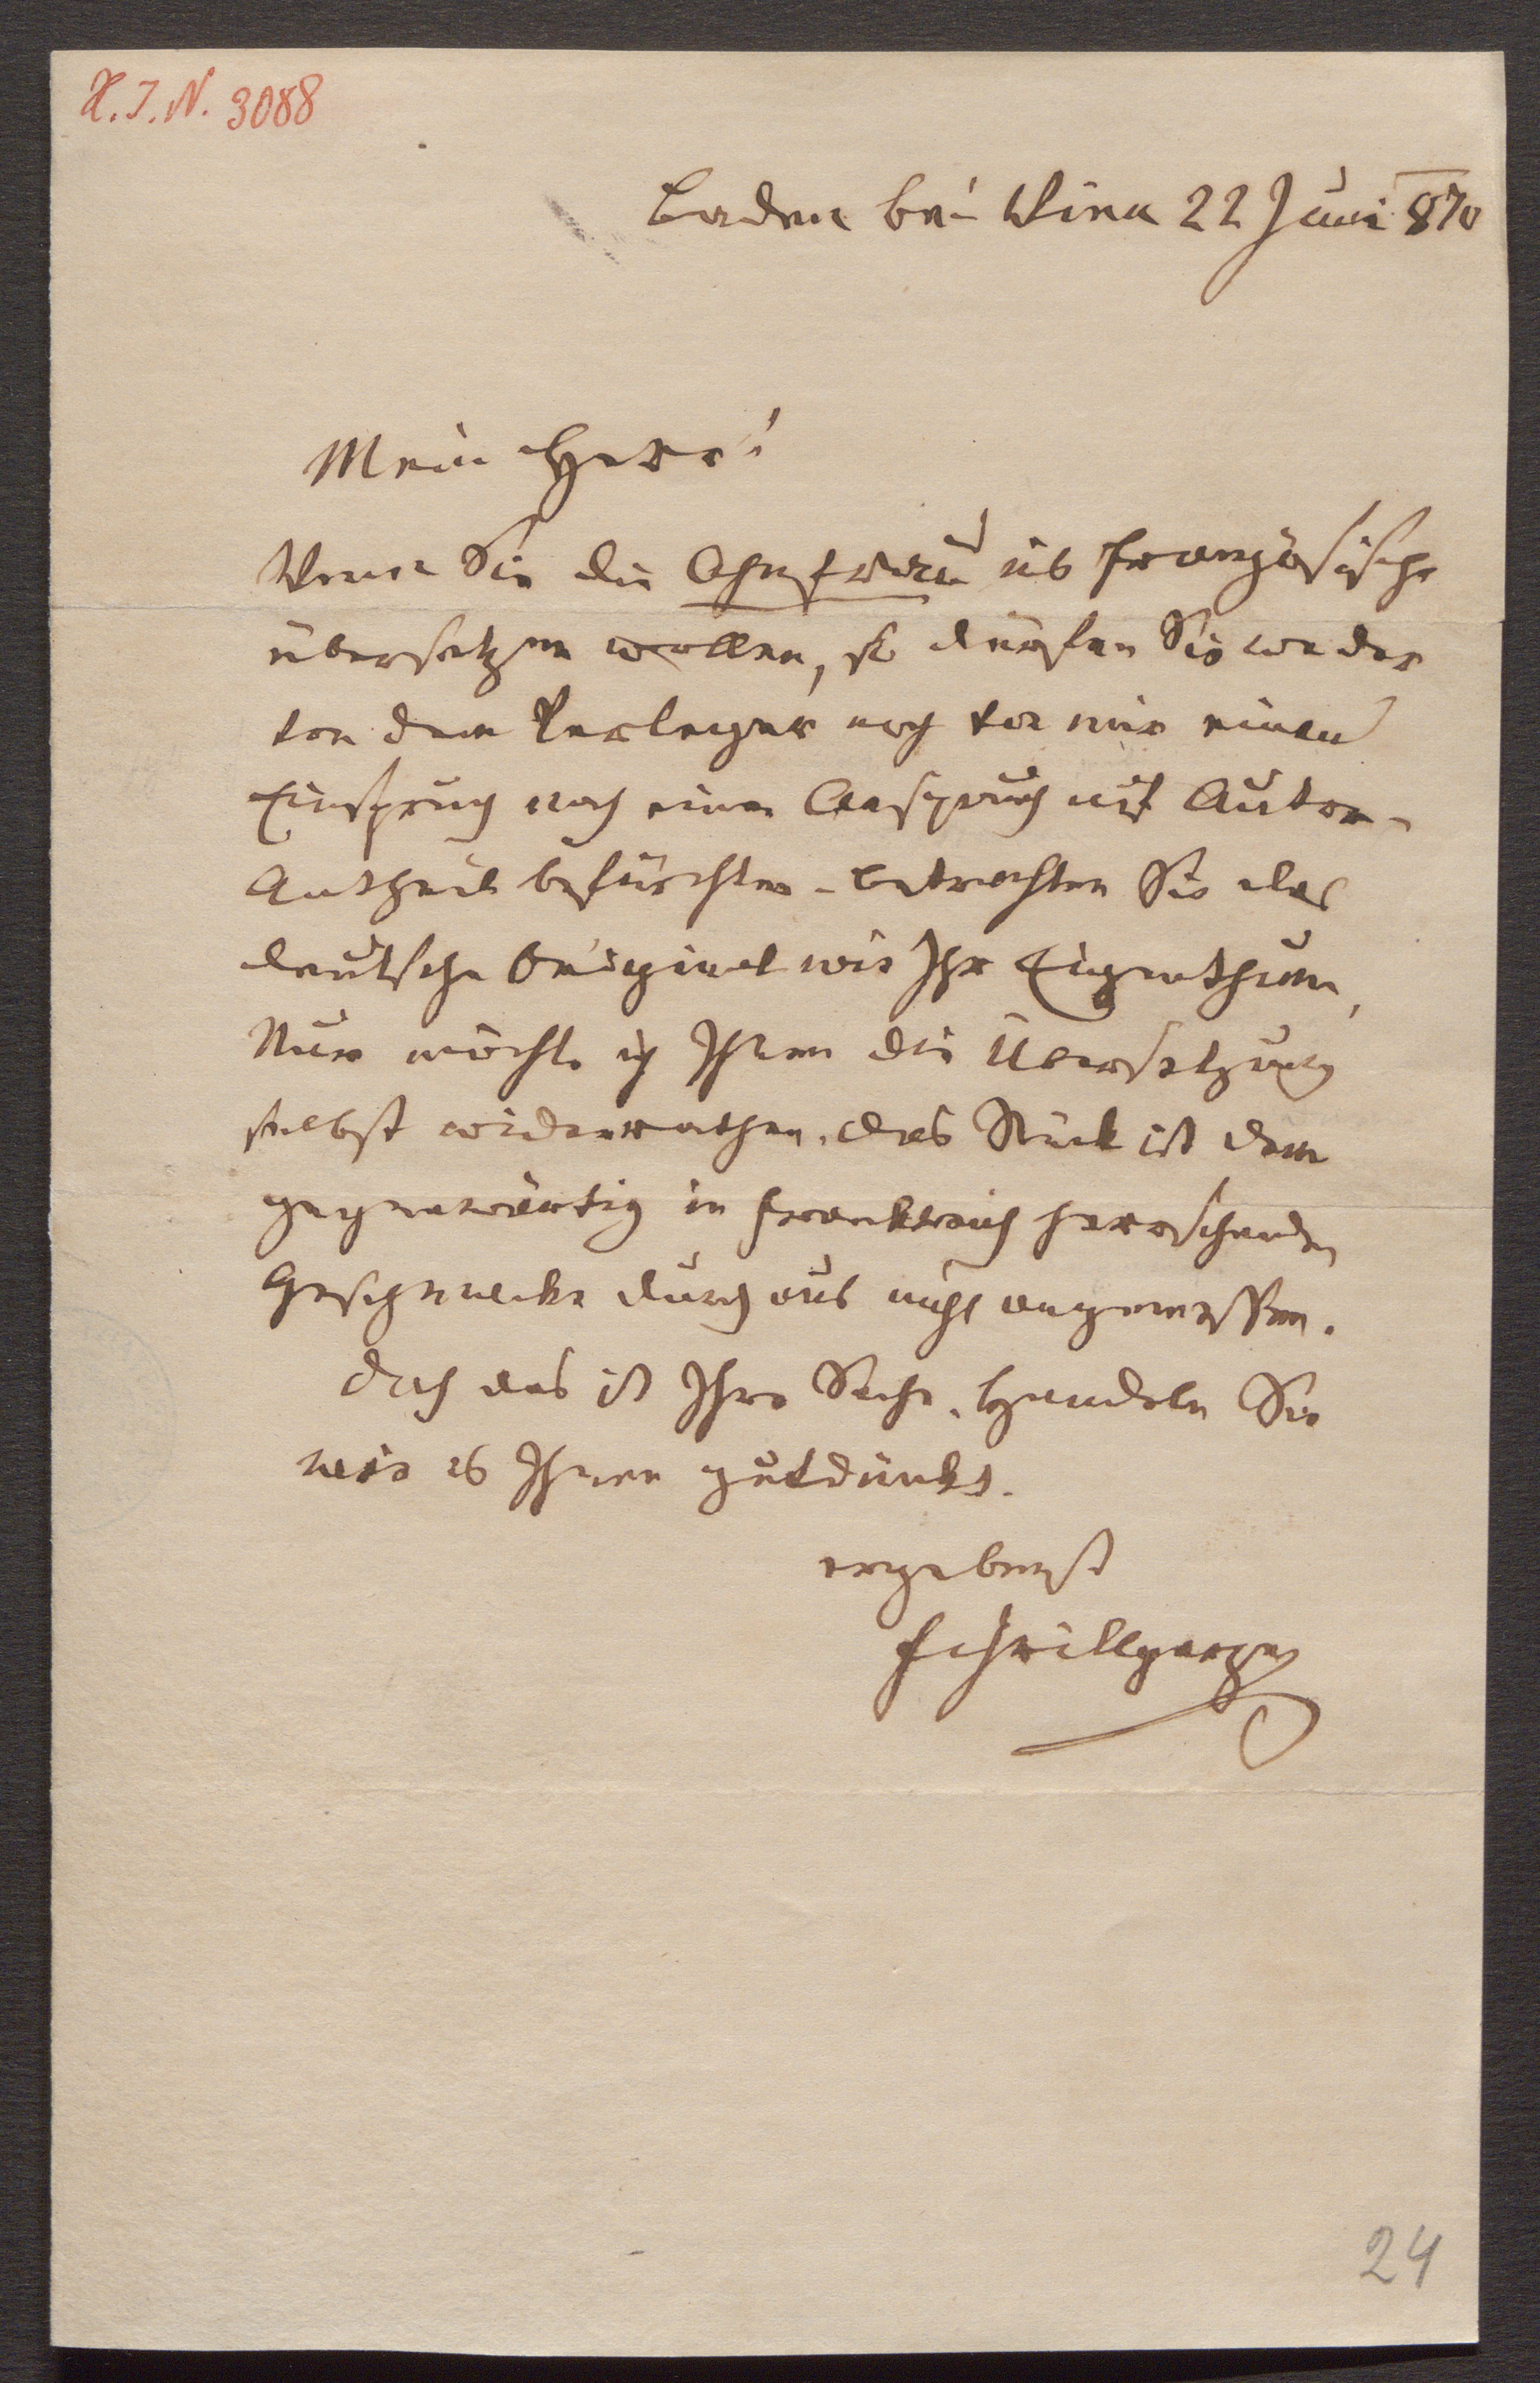 H.I.N. 3088
Baden bei Wien 22 Juni 870
Mein Herr!
Wenn Sie die Ahnfrau ins französische
übersetzen wollen, so dürfen Sie weder
von dem Verleger noch von mir einen
Einspruch noch einen Anspruch auf Autor-
Antheil befürchten. betrachten Sie das
deutsche Original wie Ihr Eigenthum,
Nur möchte ich Ihnen die Übersetzung
selbst widerrathen. das Stück ist dem
gegenwärtig in Frankreich herrschenden
Geschmacke durchaus nicht angemessen.
doch das ist Ihre Sache. Handeln Sie
wie es Ihnen gutdünkt.
ergebenst
FGrillparzer
24